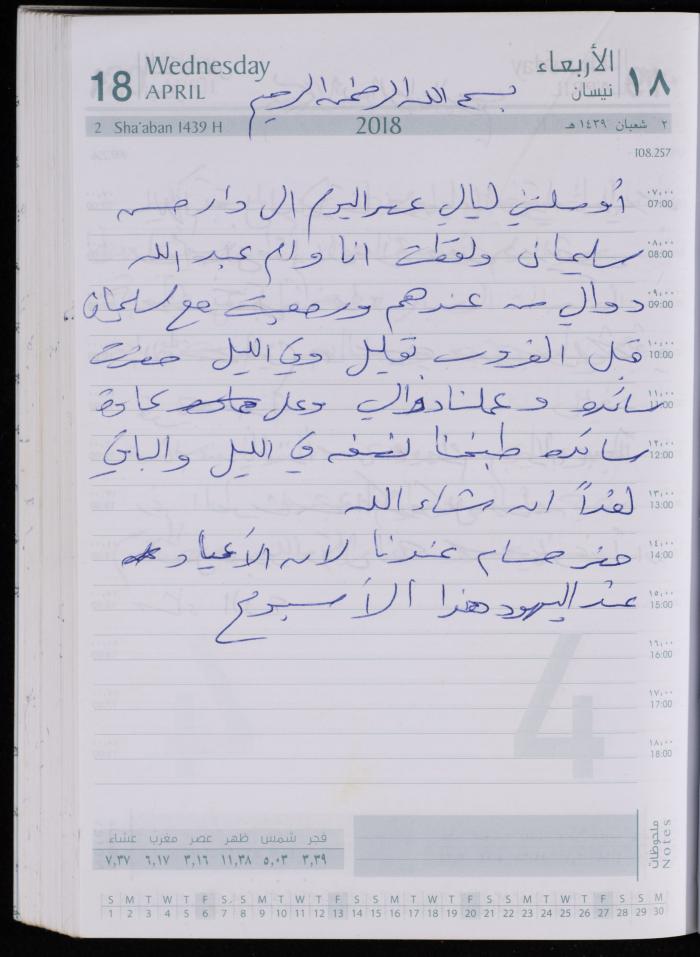 18 Wednesday الأربعاء ١٨
APRIL نيسان
بسم الله الرحمن الرحيم
2 Sha'aban 1439 H 2018 ٢ شعبان ١٤٣٩ هـ
108.257
أوصلتني ليالي عصر اليوم ال دار حسن
٠٧:٠٠
07:00
سليمان ولقطت انا وام عبد الله
٠٨:٠٠
08:00
دوالي من عندهم ورجعت مع سليمان
٠٩:٠٠
09:00
قبل الغروب بقليل وفي الليل حضرت
١٠:٠٠
10:00
سائده وعملنا دوالي وعلى عادة
١١:٠٠
11:00
سائده طبخنا نصفه في الليل والباقي
١٢:٠٠
12:00
لغداً ان شاء الله
١٣:٠٠
13:00
حضر حسام عندنا لان الأعياد
١٤:٠٠
14:00
عند اليهود هذا الأسبوع
١٥:٠٠
15:00
١٦:٠٠
16:00
١٧:٠٠
17:00
١٨:٠٠
18:00
4
فجر شمس ظهر عصر مغرب عشاء
٣,٣٩ ٥,٠٣ ١١,٣٨ ٣,١٦ ٦,١٧ ٧,٣٧
ملحوظات
Notes
S M T W T F S S M T W T F S S M T W T F S S M T W T F S S M
1 2 3 4 5 6 7 8 9 10 11 12 13 14 15 16 17 18 19 20 21 22 23 24 25 26 27 28 29 30